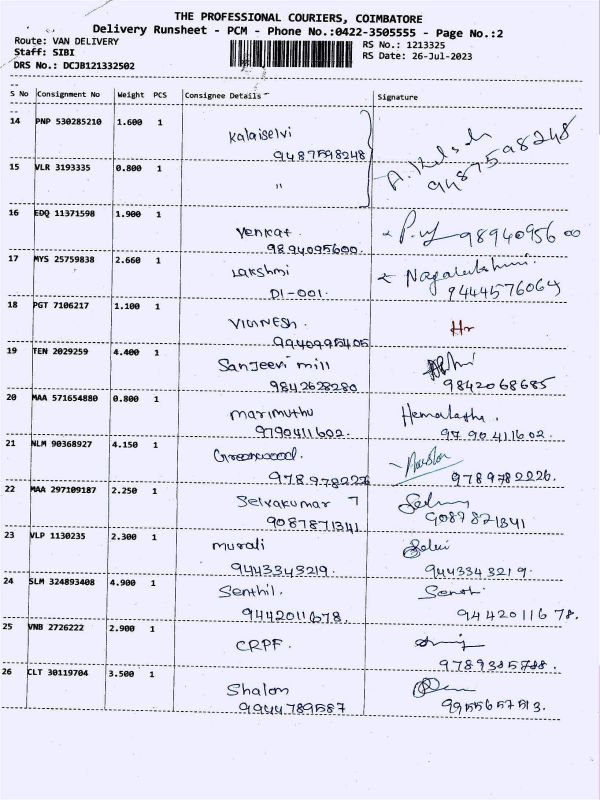 THE PROFESSIONAL COURIERS, COIMBATORE
Delivery Runsheet - PCM - Phone No.:0422-3505555 - Page No.:2
Route: VAN DELIVERY
RS No.: 1213325
Staff: SIBI
RS Date: 26-Jul-2023
DRS No.: DCJB121332502
S No Consignment No Weight PCS Consignee Details Signature
14 PNP 530285210 1.600 1 Kalaiselvi
9487598248 9487598248
15 VLR 3193335 0.800 1 "
16 EDQ 11371598 1.900 1 Venkat.
9894095600. 9894095600
17 MYS 25759838 2.660 1 Lakshmi
D1-001. 9444576064
18 PGT 7106217 1.100 1 VIGNESH.
9940995405
19 TEN 2029259 4.400 1 Sanjeevi mill
9842628280 9842068685
20 MAA 571654880 0.800 1 marimuthu Hemalatha.
9790411602. 9790411602.
21 NLM 90368927 4.150 1 Greenwood.
9789782226 9789782226.
22 MAA 297109187 2.250 1 Selvakumar 7
9087871341
23 VLP 1130235 2.300 1 murali
9443343219. 9443343219.
24 SLM 324893408 4.900 1 Senthil.
9442011678. 9442011678.
25 VNB 2726222 2.900 1 CRPF.
26 CLT 30119704 3.500 1 Shalom
9944789587 9955657513.